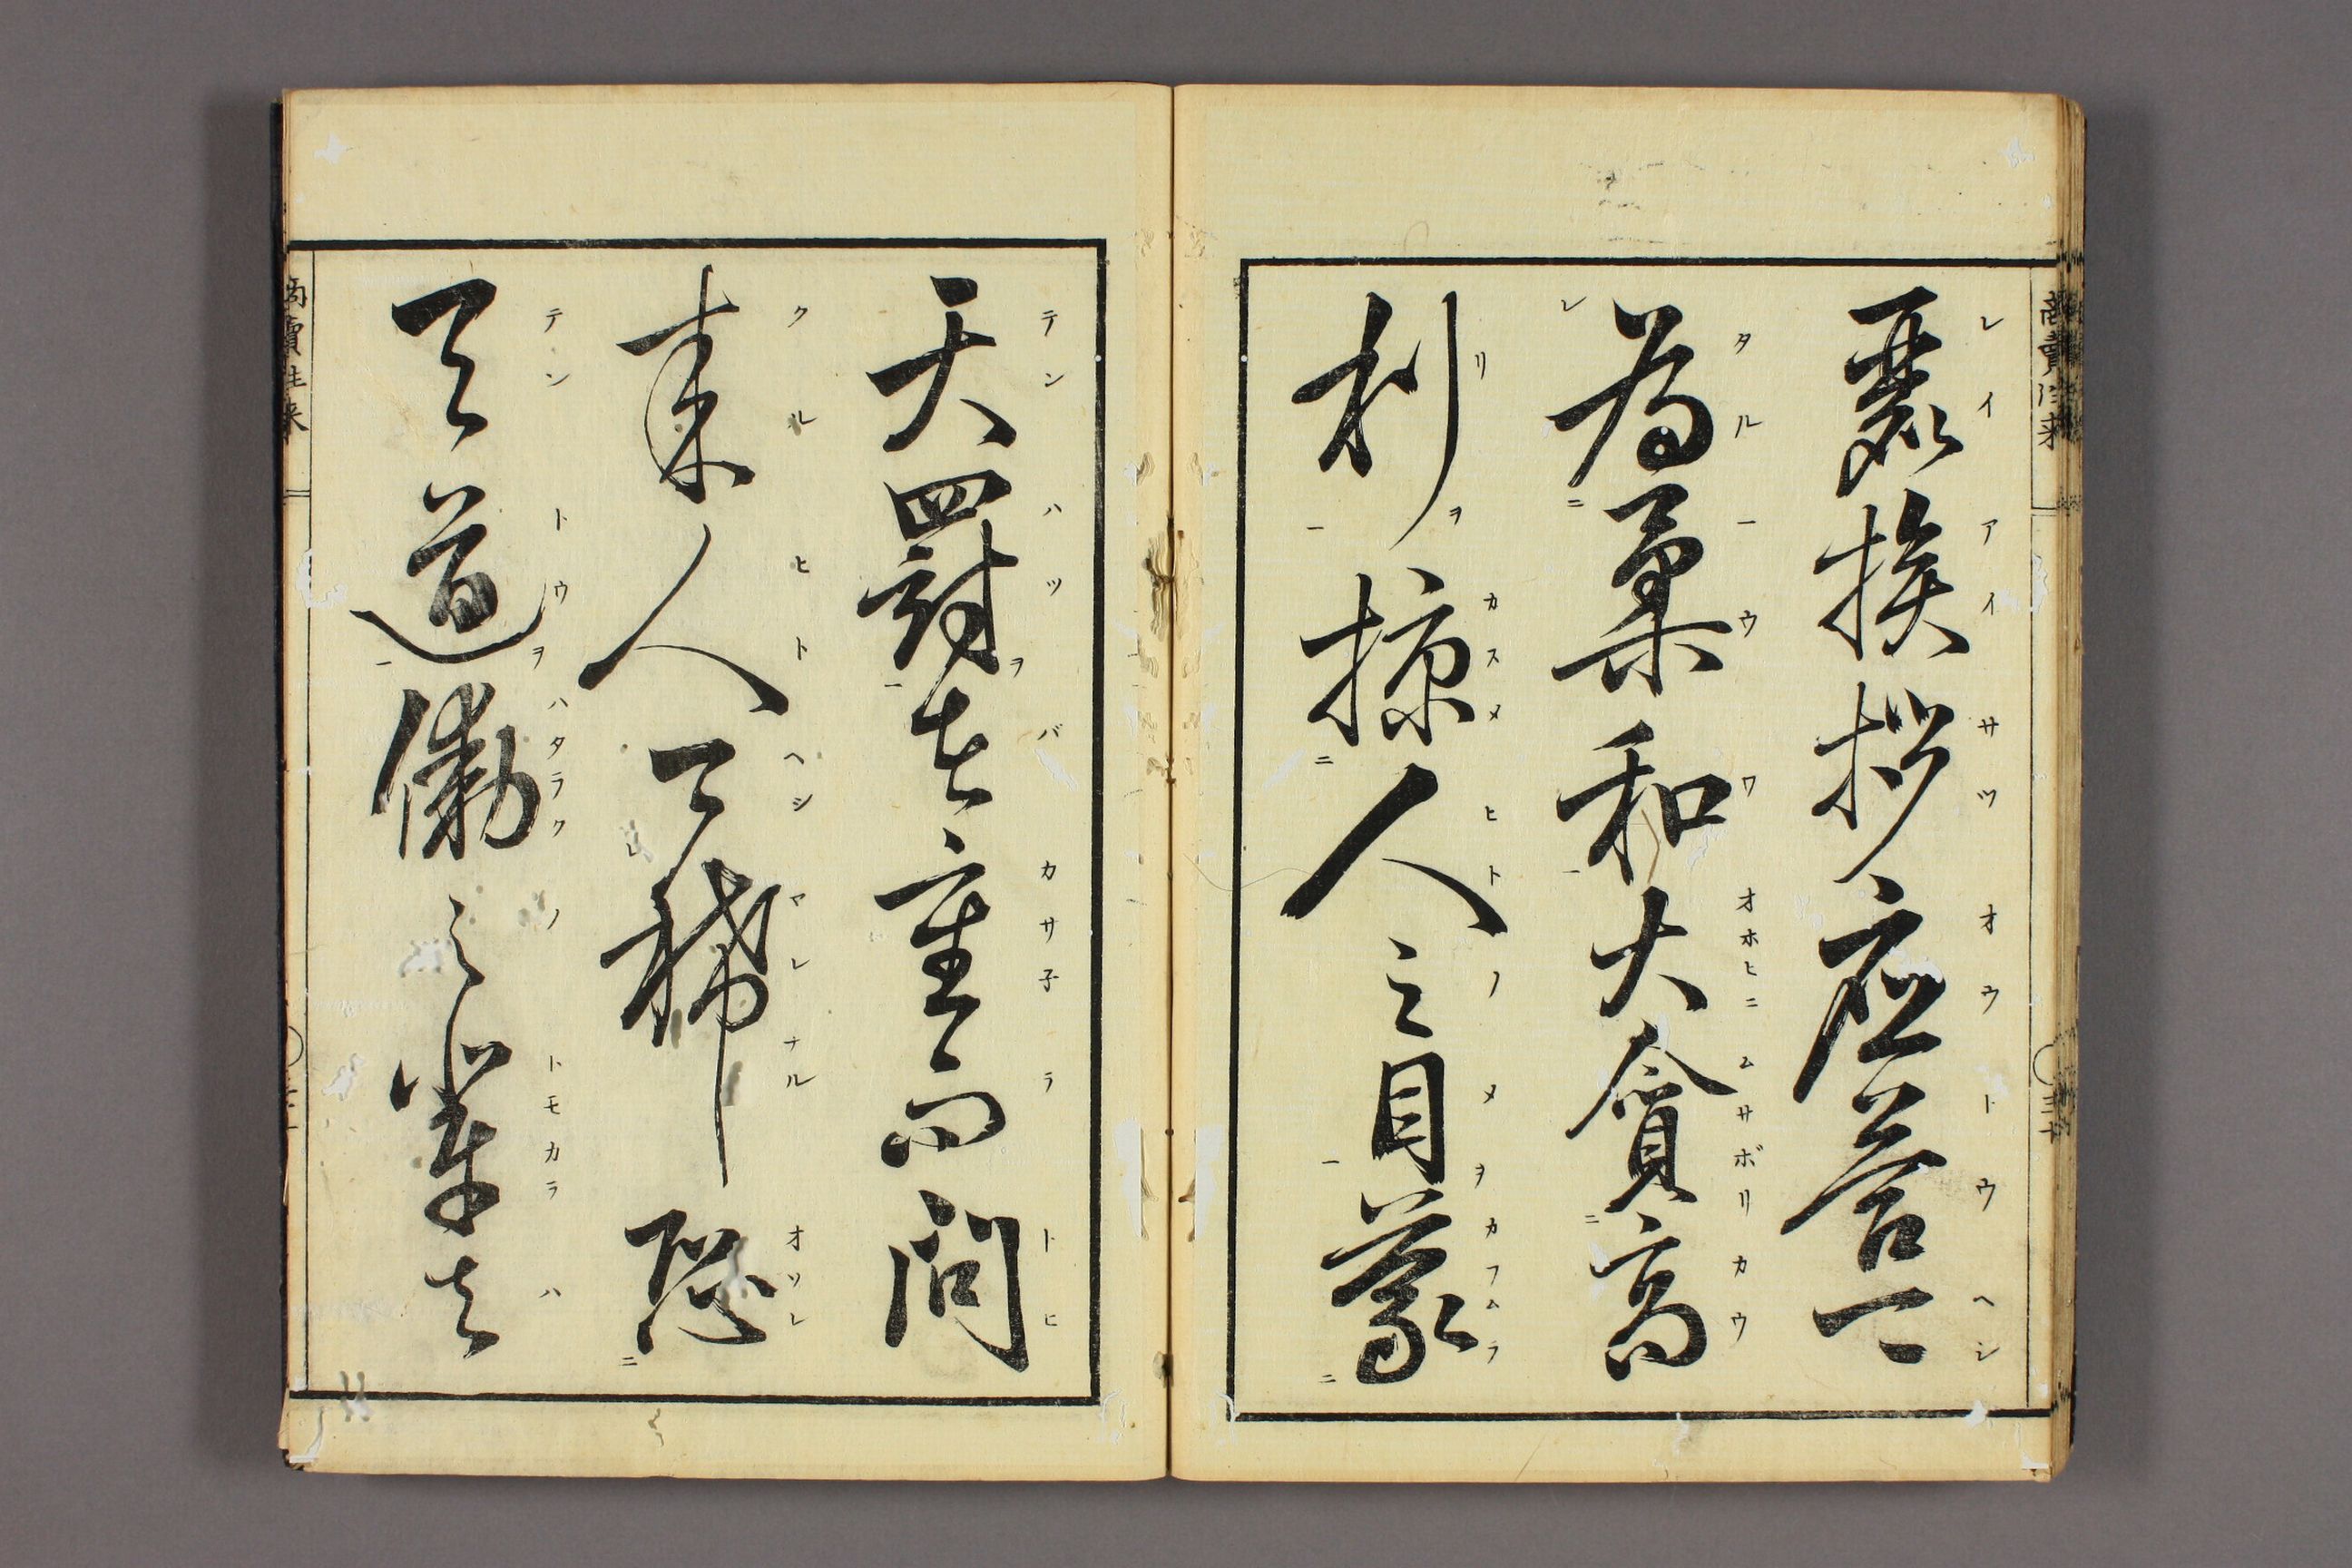 商賣往来
三十
レイアイサツオウトウヘシ
麗挨拶應答可
タルーウワオホヒニムサボリカウ
為柔和大貪高
リヲカスメヒトノメヲカフムラ
利掠人之目蒙
テンハツヲバカサ子ラトヒ
天罰者重而問
クルヒトヘシマレナルオソレ
来人可稀恐
テントウヲハタラクノトモカラハ
天道働之輩者
商賣往来